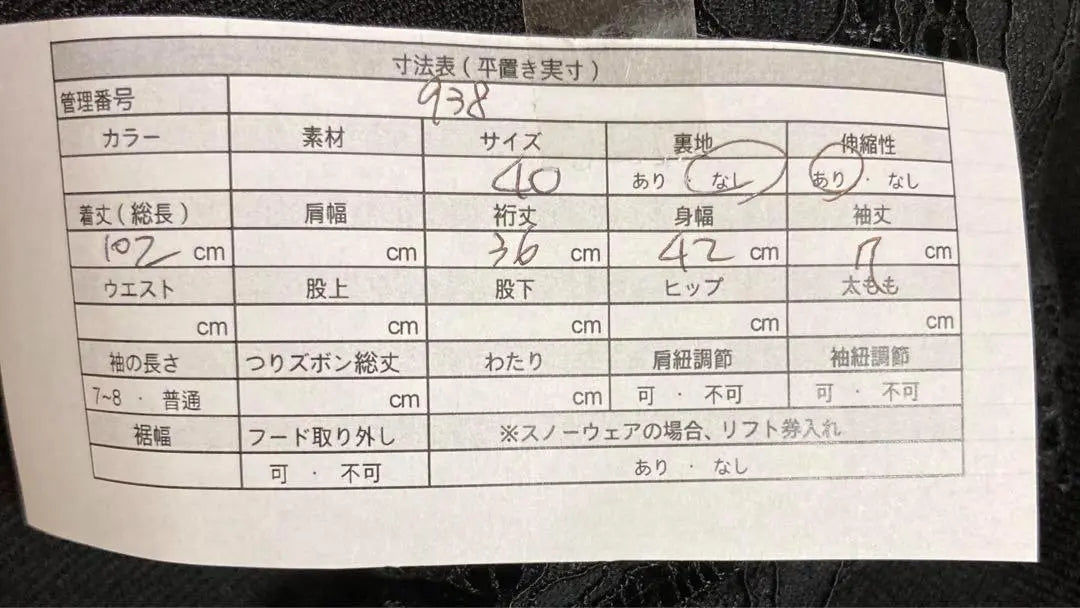 寸法表(平置き実寸)
管理番号 938
カラー 素材 サイズ 裏地 伸縮性
40 あり ・ なし あり ・ なし
着丈(総長) 肩幅 裄丈 身幅 袖丈
102 cm cm 36 cm 42 cm 7 cm
ウエスト 股上 股下 ヒップ 太もも
cm cm cm cm cm
袖の長さ つりズボン総丈 わたり 肩紐調節 袖紐調節
7~8 ・ 普通 cm cm 可 ・ 不可 可 ・ 不可
裾幅 フード取り外し ※スノーウェアの場合、リフト券入れ
可 ・ 不可 あり ・ なし